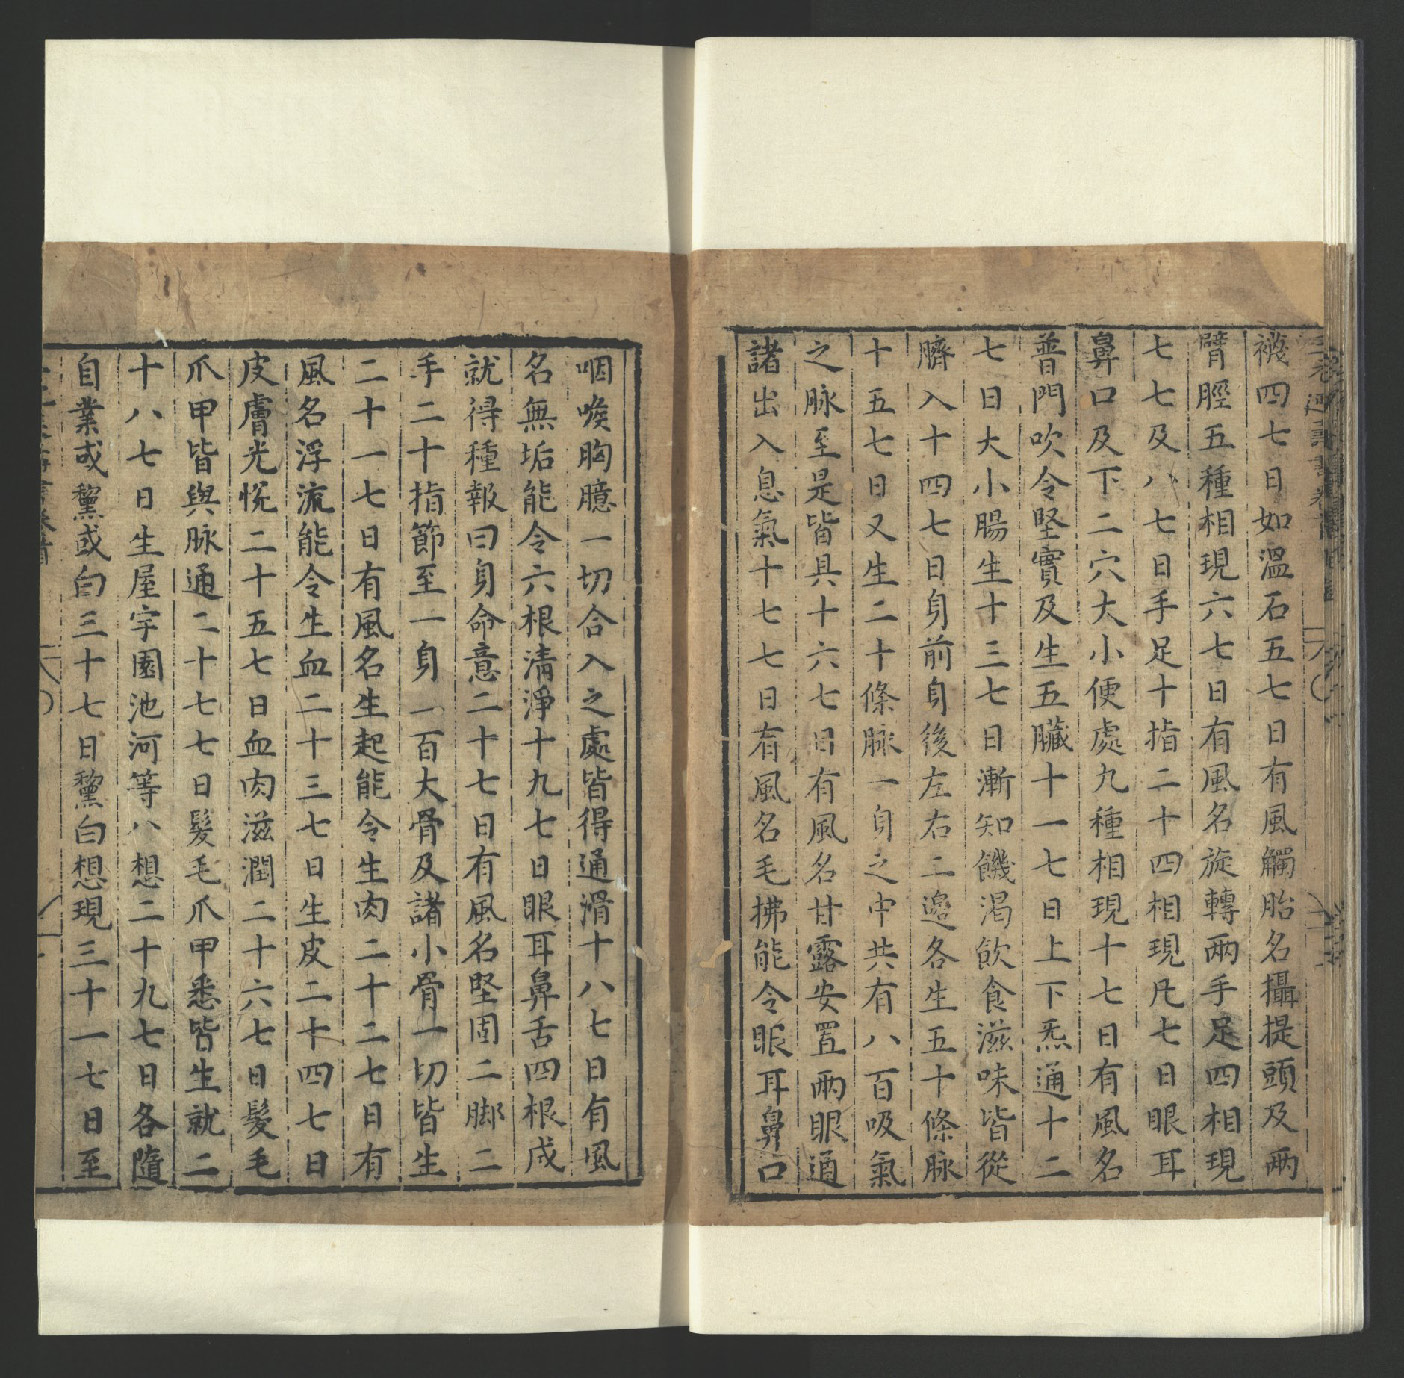 襪四七日如溫石五七日有風觸胎名攝提頭及兩
臂脛五種相現六七日有風名旋轉兩手足四相現
七七及八七日手足十指二十四相現凡七日眼耳
鼻口及下二穴大小便處九種相現十七日有風名
普門吹令堅實及生五臟十一七日上下炁通十二
七日大小腸生十三七日漸知饑渴飲食滋味皆從
臍入十四七日身前身後左右二邊各生五十條脉
十五七日又生二十條脉一身之中共有八百吸氣
之脉至是皆具十六七日有風名甘露安置兩眼通
諸出入息氣十七七日有風名毛拂能令眼耳鼻口
咽喉胸臆一切合入之處皆得通滑十八七日有風
名無垢能令六根清淨十九七日眼耳鼻舌四根成
就得種報曰身命意二十七日有風名堅固二脚二
手二十指節至一身一百大骨及諸小骨一切皆生
二十一七日有風名生起能令生肉二十二七日有
風名浮流能令生血二十三七日生皮二十四七日
皮膚光悅二十五七日血肉滋潤二十六七日髮毛
爪甲皆與脉通二十七七日髮毛爪甲悉皆生就二
十八七日生屋宇園池河等八想二十九七日各隨
自業或黧或白三十七日黧白想現三十一七日至